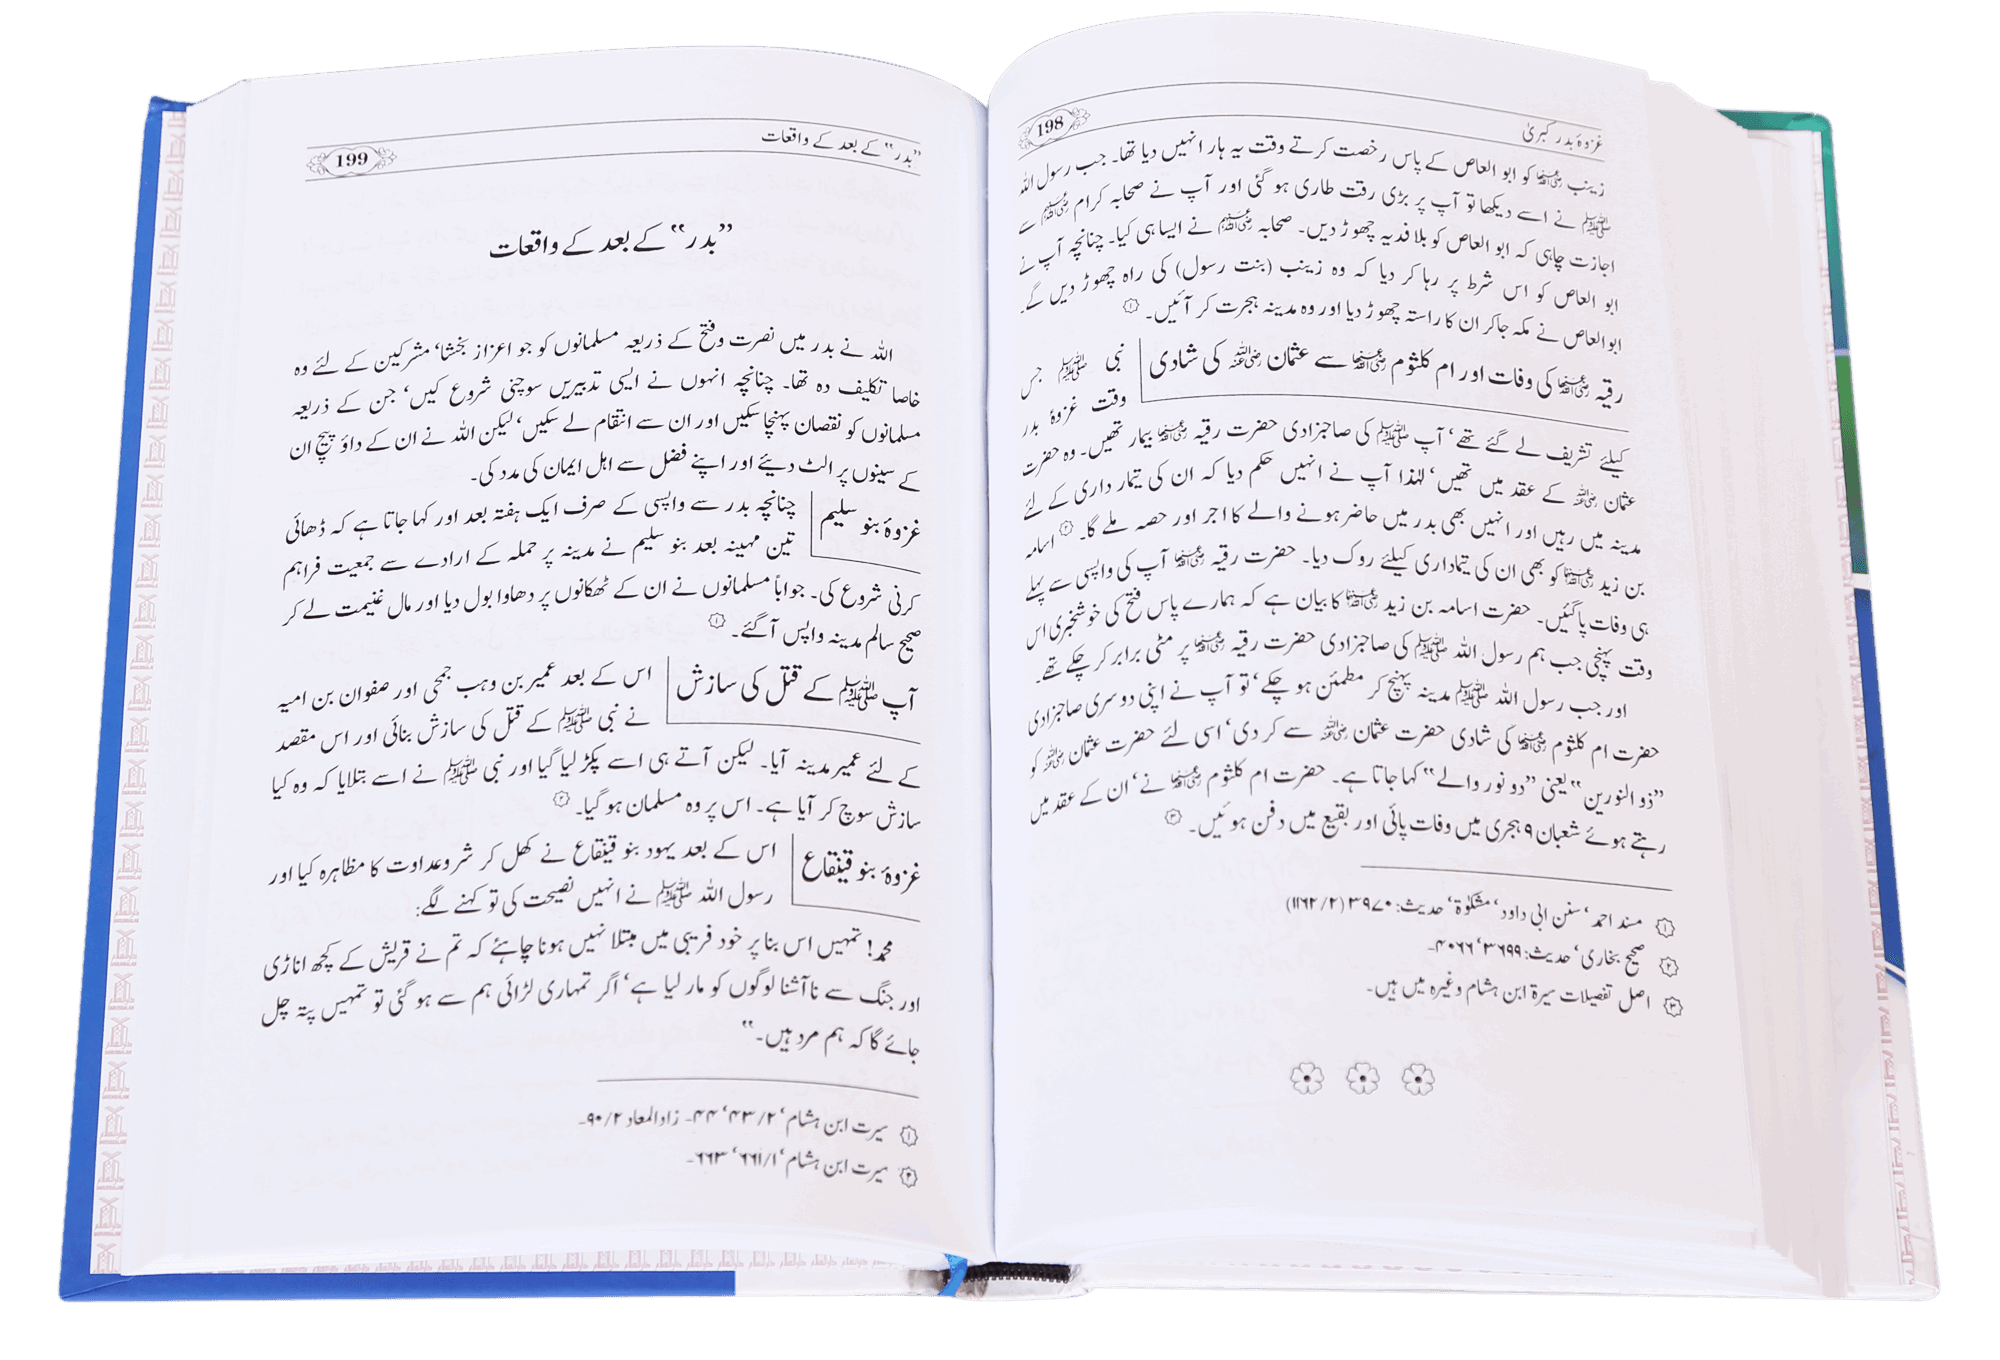 198
غزوۂ بدر کبریٰ
زینب رضی اللہ عنہا کو ابو العاص کے پاس رخصت کرتے وقت یہ ہار انہیں دیا تھا۔ جب رسول اللہ
ﷺ نے اسے دیکھا تو آپ پر بڑی رقت طاری ہو گئی اور آپ نے صحابہ کرام رضی اللہ عنہم سے
اجازت چاہی کہ ابو العاص کو بلا فدیہ چھوڑ دیں۔ صحابہ رضی اللہ عنہم نے ایسا ہی کیا۔ چنانچہ آپ نے
ابو العاص کو اس شرط پر رہا کر دیا کہ وہ زینب (بنت رسول) کی راہ چھوڑ دیں گے۔
ابوالعاص نے مکہ جاکر ان کا راستہ چھوڑ دیا اور وہ مدینہ ہجرت کر آئیں۔ ①
رقیہ رضی اللہ عنہا کی وفات اور ام کلثوم رضی اللہ عنہا سے عثمان رضی اللہ عنہ کی شادی
نبی ﷺ جس
وقت غزوۂ بدر
کیلئے تشریف لے گئے تھے‘ آپ ﷺ کی صاحبزادی حضرت رقیہ رضی اللہ عنہا بیمار تھیں۔ وہ حضرت
عثمان رضی اللہ عنہ کے عقد میں تھیں‘ لہٰذا آپ نے انہیں حکم دیا کہ ان کی تیمار داری کے لئے
مدینہ میں رہیں اور انہیں بھی بدر میں حاضر ہونے والے کا اجر اور حصہ ملے گا۔ ② اسامہ
بن زید رضی اللہ عنہما کو بھی ان کی تیماداری کیلئے روک دیا۔ حضرت رقیہ رضی اللہ عنہا آپ کی واپسی سے پہلے
ہی وفات پاگئیں۔ حضرت اسامہ بن زید رضی اللہ عنہما کا بیان ہے کہ ہمارے پاس فتح کی خوشخبری اس
وقت پہنچی جب ہم رسول اللہ ﷺ کی صاحبزادی حضرت رقیہ رضی اللہ عنہا پر مٹی برابر کر چکے تھے۔
اور جب رسول اللہ ﷺ مدینہ پہنچ کر مطمئن ہو چکے‘ تو آپ نے اپنی دوسری صاحبزادی
حضرت ام کلثوم رضی اللہ عنہا کی شادی حضرت عثمان رضی اللہ عنہ سے کر دی‘ اسی لئے حضرت عثمان رضی اللہ عنہ کو
”ذو النورین“ یعنی ”دو نور والے“ کہا جاتا ہے۔ حضرت ام کلثوم رضی اللہ عنہا نے‘ ان کے عقد میں
رہتے ہوئے شعبان ۹ ہجری میں وفات پائی اور بقیع میں دفن ہوئیں۔ ③
① مسند احمد‘ سنن ابی داود‘ مشکوٰۃ‘ حدیث: ۳۹۷۰ (۲/۱۱۶۲)
② صحیح بخاری‘ حدیث: ۳۶۹۹‘ ۴۰۶۶۔
③ اصل تفصیلات سیرۃ ابن ہشام وغیرہ میں ہیں۔
199
”بدر“ کے بعد کے واقعات
”بدر“ کے بعد کے واقعات
اللہ نے بدر میں نصرت وفتح کے ذریعہ مسلمانوں کو جو اعزاز بخشا‘ مشرکین کے لئے وہ
خاصا تکلیف دہ تھا۔ چنانچہ انہوں نے ایسی تدبیریں سوچنی شروع کیں‘ جن کے ذریعہ
مسلمانوں کو نقصان پہنچا سکیں اور ان سے انتقام لے سکیں‘ لیکن اللہ نے ان کے داؤ پیچ ان
کے سینوں پر الٹ دیئے اور اپنے فضل سے اہل ایمان کی مدد کی۔
غزوۂ بنو سلیم
چنانچہ بدر سے واپسی کے صرف ایک ہفتہ بعد اور کہا جاتا ہے کہ ڈھائی
تین مہینہ بعد بنو سلیم نے مدینہ پر حملہ کے ارادے سے جمعیت فراہم
کرنی شروع کی۔ جواباً مسلمانوں نے ان کے ٹھکانوں پر دھاوا بول دیا اور مال غنیمت لے کر
صحیح سالم مدینہ واپس آگئے۔ ①
آپ ﷺ کے قتل کی سازش
اس کے بعد عمیر بن وہب جمحی اور صفوان بن امیہ
نے نبی ﷺ کے قتل کی سازش بنائی اور اس مقصد
کے لئے عمیر مدینہ آیا۔ لیکن آتے ہی اسے پکڑ لیا گیا اور نبی ﷺ نے اسے بتلایا کہ وہ کیا
سازش سوچ کر آیا ہے۔ اس پر وہ مسلمان ہو گیا۔ ②
غزوۂ بنو قینقاع
اس کے بعد یہود بنو قینقاع نے کھل کر شروعداوت کا مظاہرہ کیا اور
رسول اللہ ﷺ نے انہیں نصیحت کی تو کہنے لگے:
محمد! تمہیں اس بنا پر خود فریبی میں مبتلا نہیں ہونا چاہئے کہ تم نے قریش کے کچھ اناڑی
اور جنگ سے ناآشنا لوگوں کو مار لیا ہے‘ اگر تمہاری لڑائی ہم سے ہو گئی تو تمہیں پتہ چل
جائے گا کہ ہم مرد ہیں۔“
① سیرت ابن ہشام‘ ۲/۴۳‘ ۴۴۔ زادالمعاد ۲/۹۰۔
② سیرت ابن ہشام‘ ۱/۶۶۱‘ ۶۶۳۔